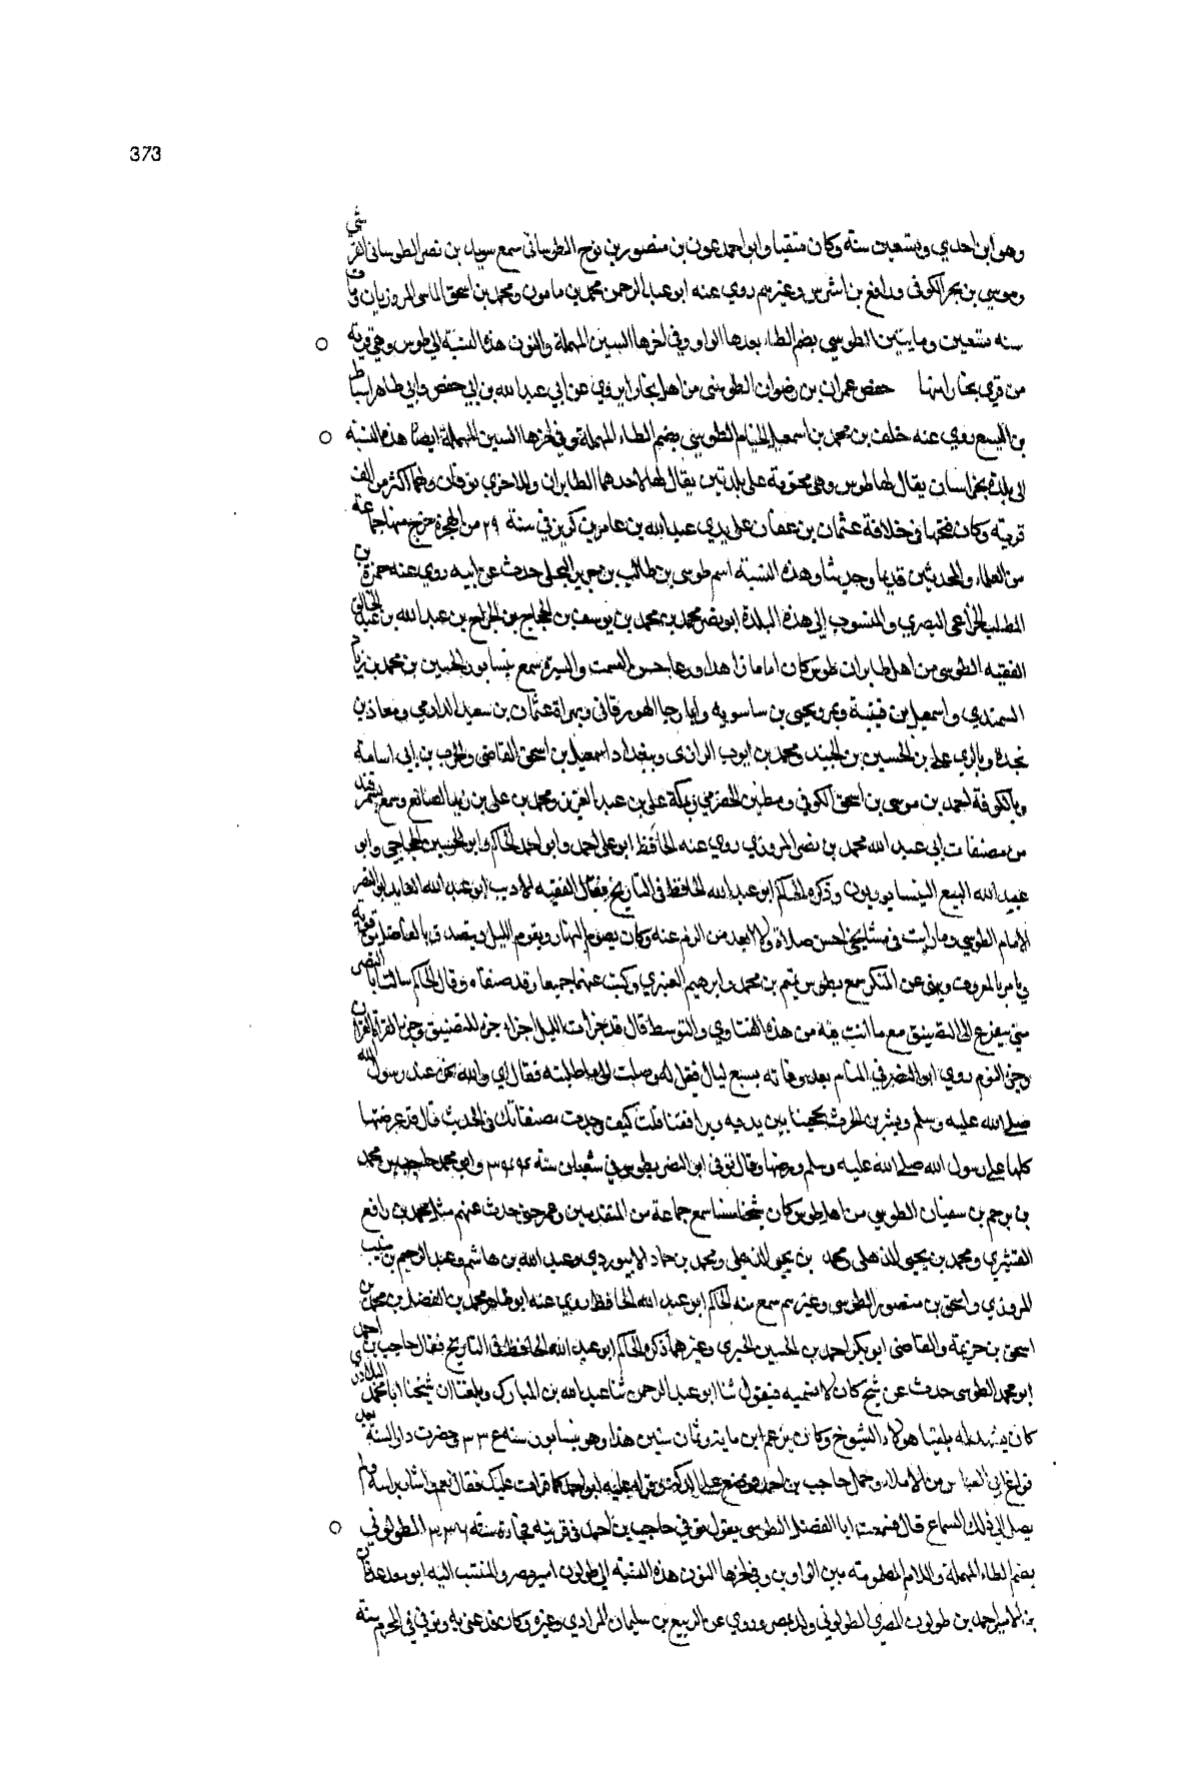 373
وهو ابن احدي وتسعين سنة وكان متقيا وابو احمد عون بن منصور بن نوح الطوسانى سمع سويد بن نصر الطوسانى
وموسي بن بحر الكوفى ورافع بن اشرس وغيرهم روي عنه ابو عبد الرحمن محمد بن مامون ومحمد بن اسحق المروزيان
سنه تسعين ومايتين الطوسي بضم الطاء بعدها الواو وفي اخرها السين المهملة والنون هذه النسبة الى طوس وهي قرية
من قري بخارا منها حفص عمران بن رضوان الطوسى من اهل بخارا يروي عن ابي عبد الله بن ابي حفص وابي طاهر اسباط
بن اليسع روي عنه خلف بن محمد بن اسمعيل الخيام الطوسي بضم الطاء المهملة وفي اخرها السين المهملة ايضا هذه النسبة
الى بلدة بخراسان يقال لها طوس وهي محتوية على بلدتين يقال لهما لاحدهما الطابران وللاخري نوقان ولهما اكثر من الف
قرية وكان فتحها في خلافة عثمان بن عفان على يدي عبد الله بن عامر بن كريز في سنة ٢٩ من الهجرة خرج منها جماعة
من العلماء والمحدثين قديما وحديثا وهذه النسبة اسم طوسى بن طالب بن جرير البجلى حدث عن ابيه روي عنه حمزة بن
المطلب الخزاعى البصري والمنسوب الى هذه البلدة ابو نصر محمد بن محمد بن يوسف بن الحجاج بن الجراح بن عبد الله بن عبد الخالق
الفقيه الطوسى من اهل طابران طوس كان اماما زاهدا ورعا حسن السمت والسيرة سمع بنيسابور الحسين بن محمد بن زياد
السمندي واسمعيل بن قتيبة وبمرو يحيى بن ساسويه وابا رجا الهورقانى وبهراة عثمان بن سعيد الدارمي ومعاذ بن
نجدة وبالري على بن الحسين بن الجنيد ومحمد بن ايوب الرازى وببغداد اسمعيل بن اسحق القاضى والحرث بن ابى اسامة
وبالكوفة احمد بن موسى بن اسحق الكوفي ومطين الحضرمي وبمكة على بن عبد العزيز ومحمد بن على بن زيد الصائغ وسمع بسمرقند
من مصنفات ابى عبد الله محمد بن نصر المروزي روي عنه الحافظ ابو على احمد وابو احمد الحاكم وابو الحسين الحجاجي وابو
عبد الله البيع النيسابوريون وذكره الحاكم ابو عبد الله الحافظ في التاريخ فقال الفقيه الاديب ابو عبد الله العابد ابو النضر
الامام الطوسي وما رايت فى مشايخي احسن صلاة ولا ابعد من الرفث عنه وكان يصوم النهار ويقوم الليل ويتصدق بالفاضل من قوته
ويامر بالمعروف وينهى عن المنكر سمع بطوس تميم بن محمد وابرهيم العنبري وكتب عنهما جميعا وقد صنفاه وقال الحاكم سالت ابا النضر
متى يفرغ الى التصنيف مع ما انت فيه من هذه الفتاوي والتوسط قال قد جزات الليل اجزاء جزء للتصنيف وجزء لقراءة القران
وجزء للنوم روي ابو النضر في المنام بعد وفاته بسبع ليال فقيل له وصلت الى ما طلبته فقال اي والله نحن عند رسول الله
صلى الله عليه وسلم وبشر بن الحرث يحجبنا بين يديه ويرافقنا قلت كيف وجدت مصنفاتك في الحديث قال قد عرضتها
كلها على رسول الله صلى الله عليه وسلم ورضيها وقال توفى ابو النضر بطوس في شعبان سنة ٣٤٤ وابو محمد حاجب بن محمد
بن يرحم بن سفيان الطوسي من اهل طوس كان شيخا مسنا سمع جماعة من المتقدمين وعمر حتى حدث عنهم مثل محمد بن رافع
القشيري ومحمد بن يحيى الذهلى محمد بن يحيى الذهلى ومحمد بن حماد الابيوردي وعبد الله بن هاشم وعبد الرحيم بن منيب
المروزي واسحق بن منصور الطوسى وغيرهم سمع منه الحاكم ابو عبد الله الحافظ روي عنه ابو طاهر محمد بن الفضل بن محمد بن
اسحق بن خزيمة والقاضى ابو بكر احمد بن الحسين الحيري وغيرهما ذكره الحاكم ابو عبد الله الحافظ في التاريخ فقال حاجب بن احمد
ابو محمد الطوسى حدث عن شيخ كان لا نسميه فيقول ثنا ابو عبد الرحمن ثنا عبد الله بن المبارك وبلغنا ان شيخنا ابا محمد البلاذري
كان يشهد له بلقيا هولاء الشيوخ وكان يزعم ابن مايه وثمان سنين هذا وهو بنيسابور سنه ٣٣ حضرت دار السنة
الاملاء وحمل حاجب بن احمد ووضع على الدكة وقراء عليه ابو احمد كما قرات عليك فقال نعم واشار براسه ولم
يصل الى ذلك السماع قال فسمعت ابا الفضل الطوسى يقول توفي حاجب بن احمد فى قريته فجاءة سنة ٣٣٦ الطولوني
بضم الطاء المهملة واللام المضمومة بين الواوين وفي اخرها النون هذه النسبة الى طولون امير مصر والمنتسب اليه ابو معد عدنان
بن الامير احمد بن طولون المصري الطولوني ولد بمصر وروي عن الربيع بن سليمان المرادي وغيره وتوفي في المحرم سنة